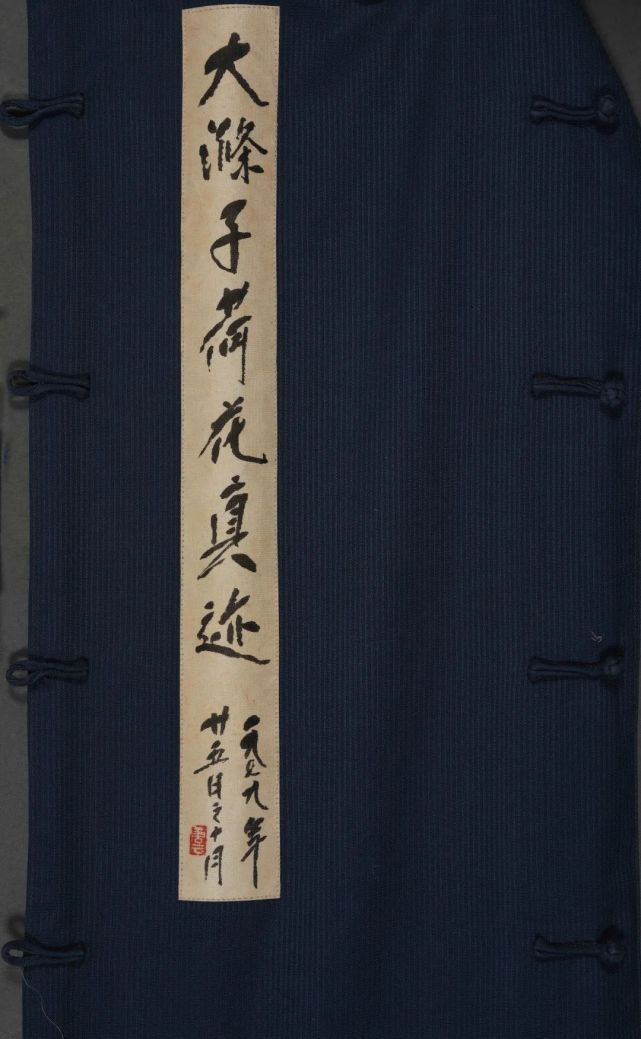 大滌子荷花真迹
一九七九年
廿五日之十月